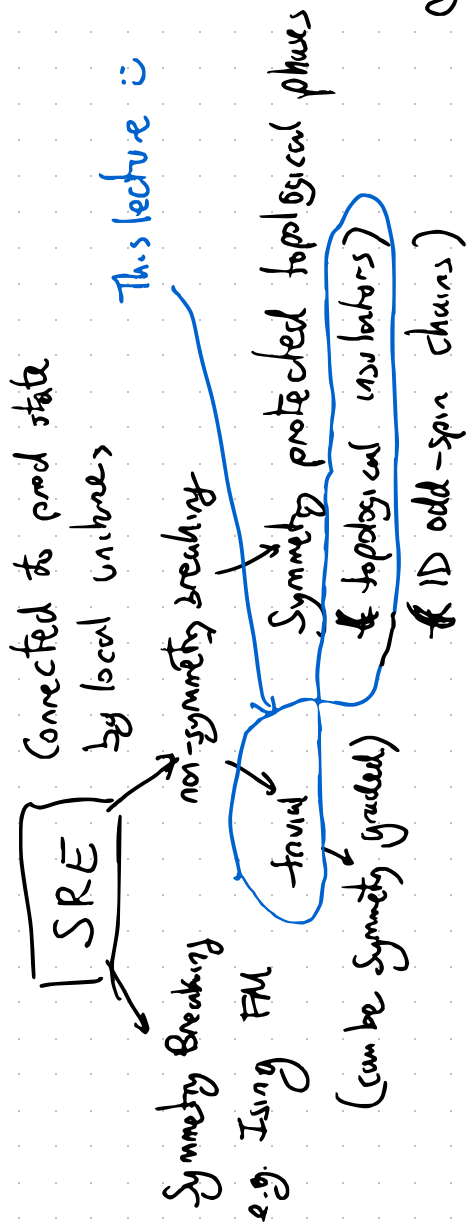 SRE
Connected to prod state
by local unitaries
This lecture :)
Symmetry Breaking
e.g. Ising FM
non-symmetry breaking
trivial
(can be symmetry graded)
Symmetry protected topological phases
topological insulators)
1D odd-spin chains)